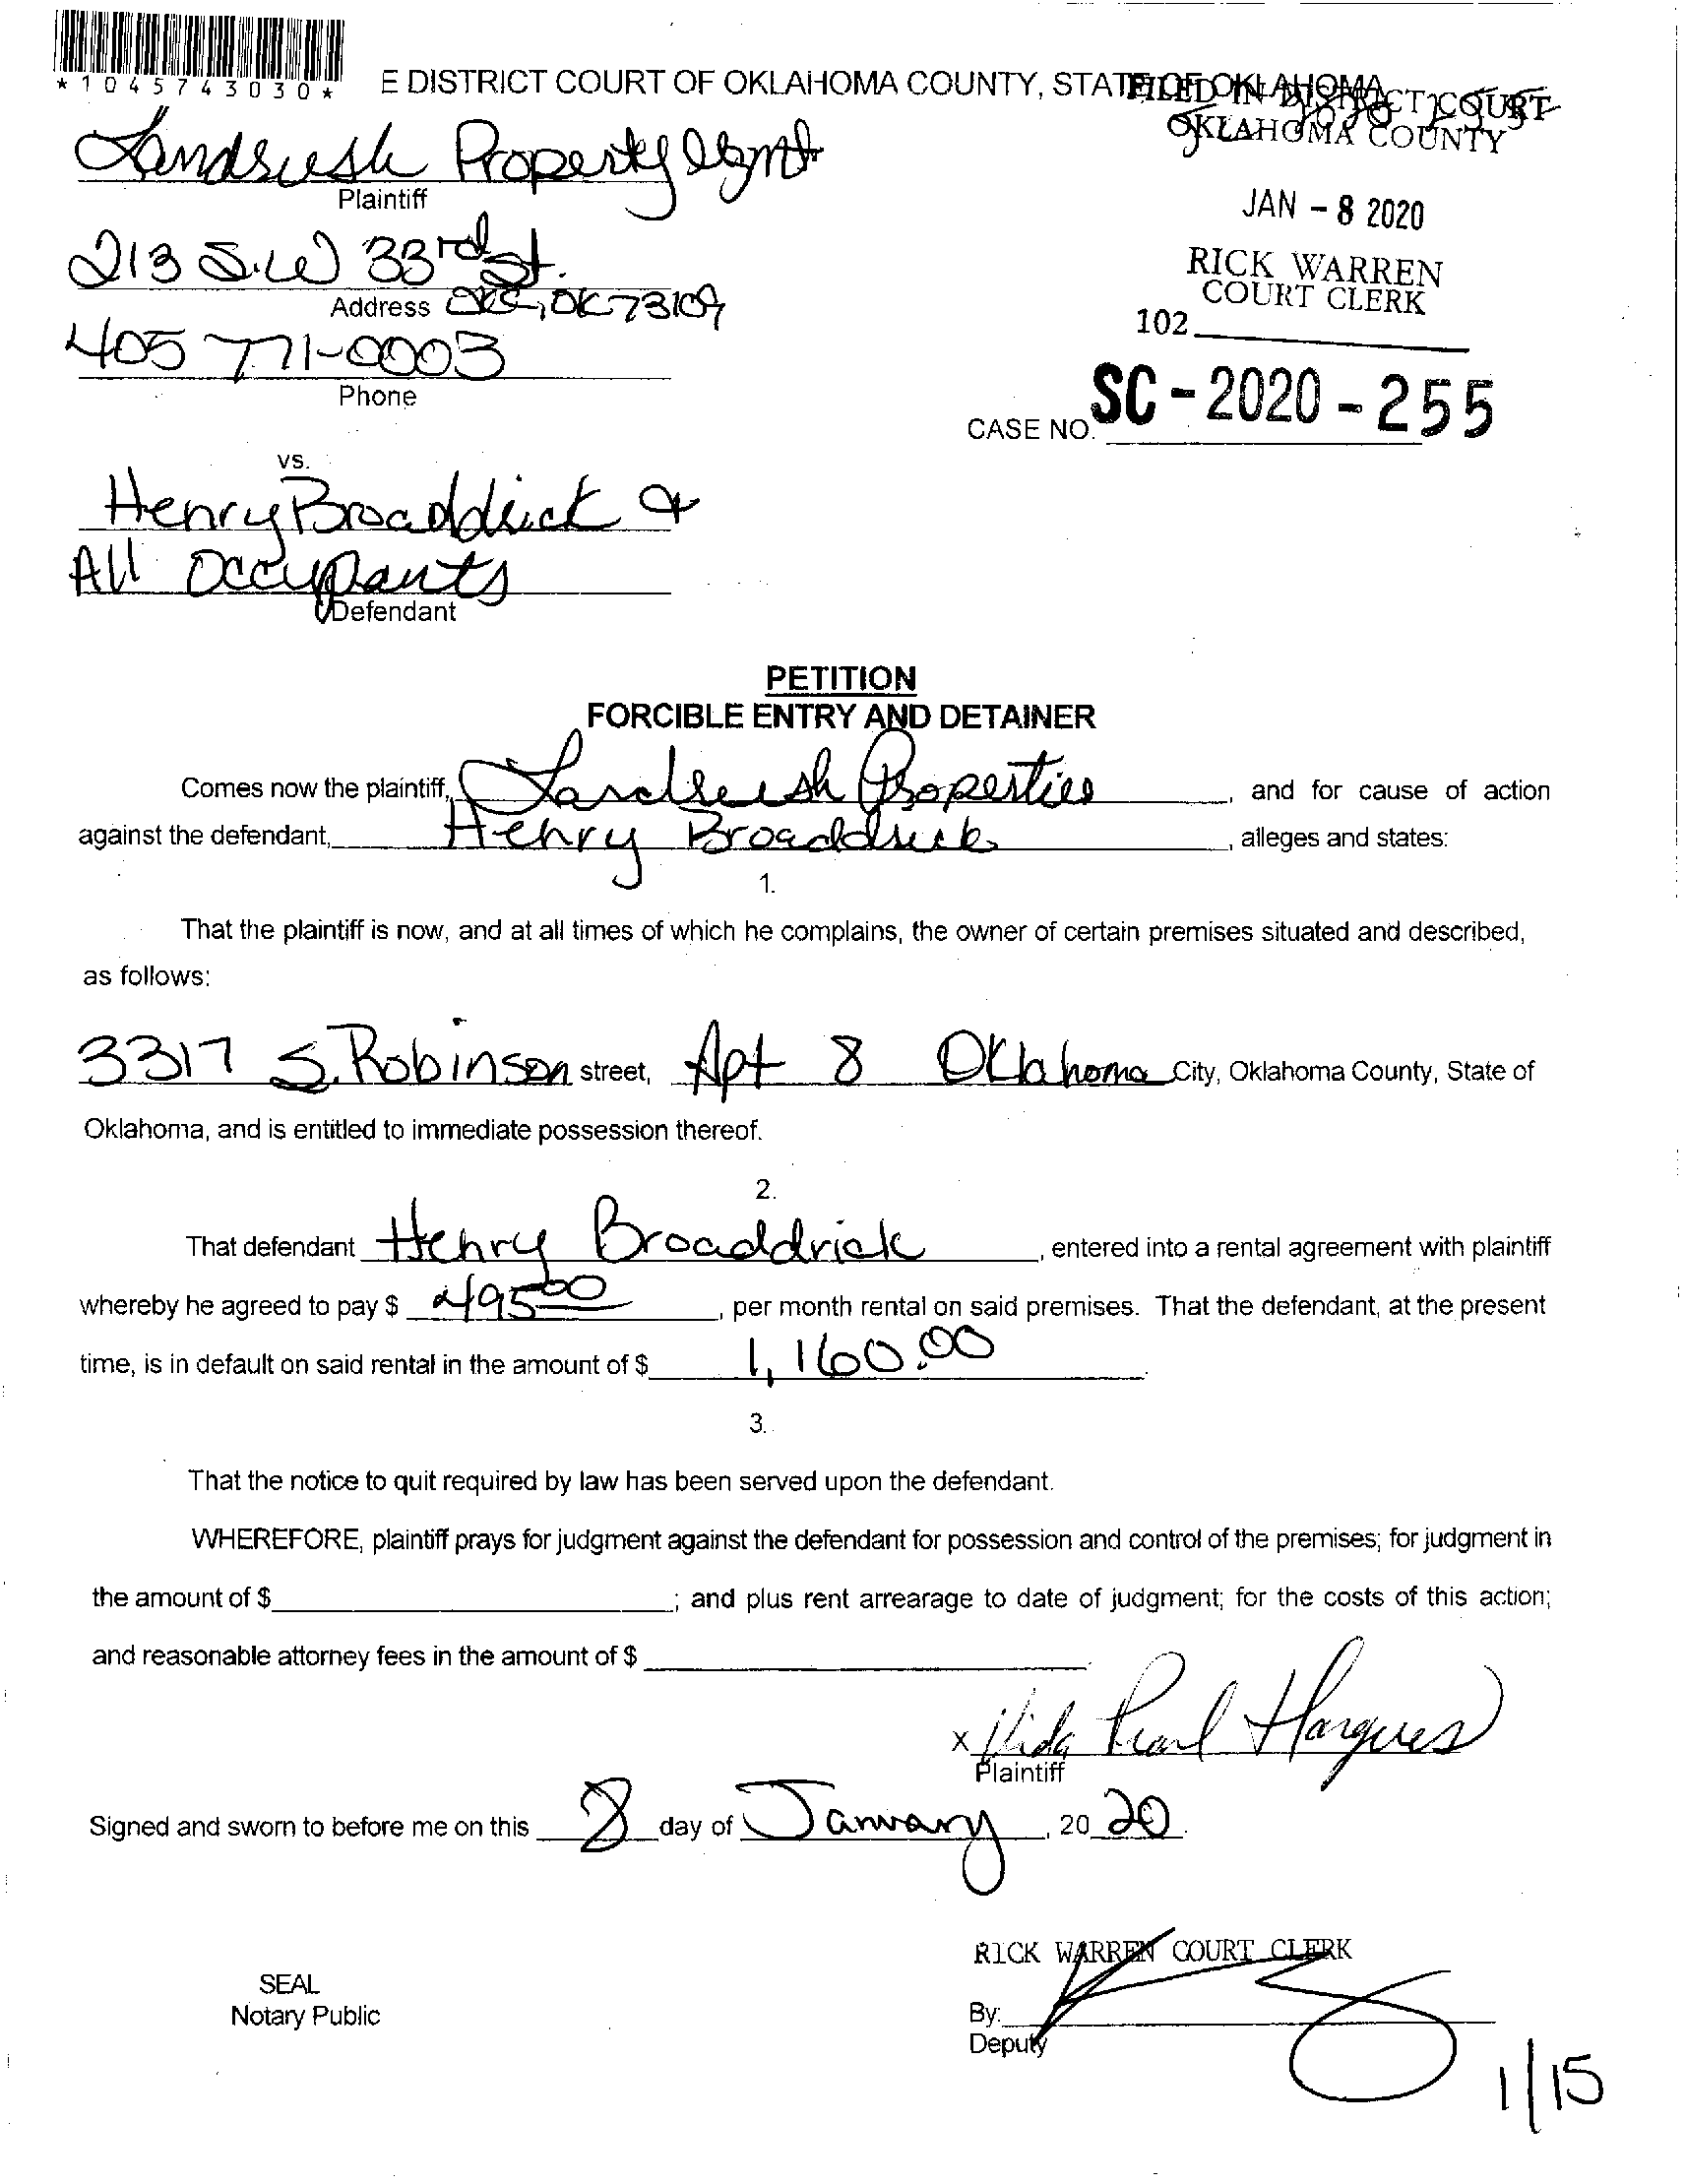 *1045743030*
E DISTRICT COURT OF OKLAHOMA COUNTY, STATE OF OKLAHOMA
FILED IN DISTRICT COURT
OKLAHOMA COUNTY
JAN - 8 2020
RICK WARREN
COURT CLERK
102
CASE NO. SC - 2020 - 255
Landrush Property Mgmt
Plaintiff
213 S.W 33rd St.
Address OKC, OK 73109
405 771-0003
Phone
vs.
Henry Broaddrick &
All Occupants
Defendant
PETITION
FORCIBLE ENTRY AND DETAINER
Comes now the plaintiff, Landrush Properties, and for cause of action
against the defendant, Henry Broaddrick, alleges and states:
1.
That the plaintiff is now, and at all times of which he complains, the owner of certain premises situated and described,
as follows:
3317 S. Robinson street, Apt 8 Oklahoma City, Oklahoma County, State of
Oklahoma, and is entitled to immediate possession thereof.
2.
That defendant Henry Broaddrick, entered into a rental agreement with plaintiff
whereby he agreed to pay $ 495.00, per month rental on said premises. That the defendant, at the present
time, is in default on said rental in the amount of $ 1,160.00.
3.
That the notice to quit required by law has been served upon the defendant.
WHEREFORE, plaintiff prays for judgment against the defendant for possession and control of the premises; for judgment in
the amount of $ ; and plus rent arrearage to date of judgment; for the costs of this action;
and reasonable attorney fees in the amount of $ .
x Vida Pearl Hargues
Plaintiff
Signed and sworn to before me on this 8 day of January, 20 20.
RICK WARREN COURT CLERK
SEAL
Notary Public
By:
Deputy
1/15